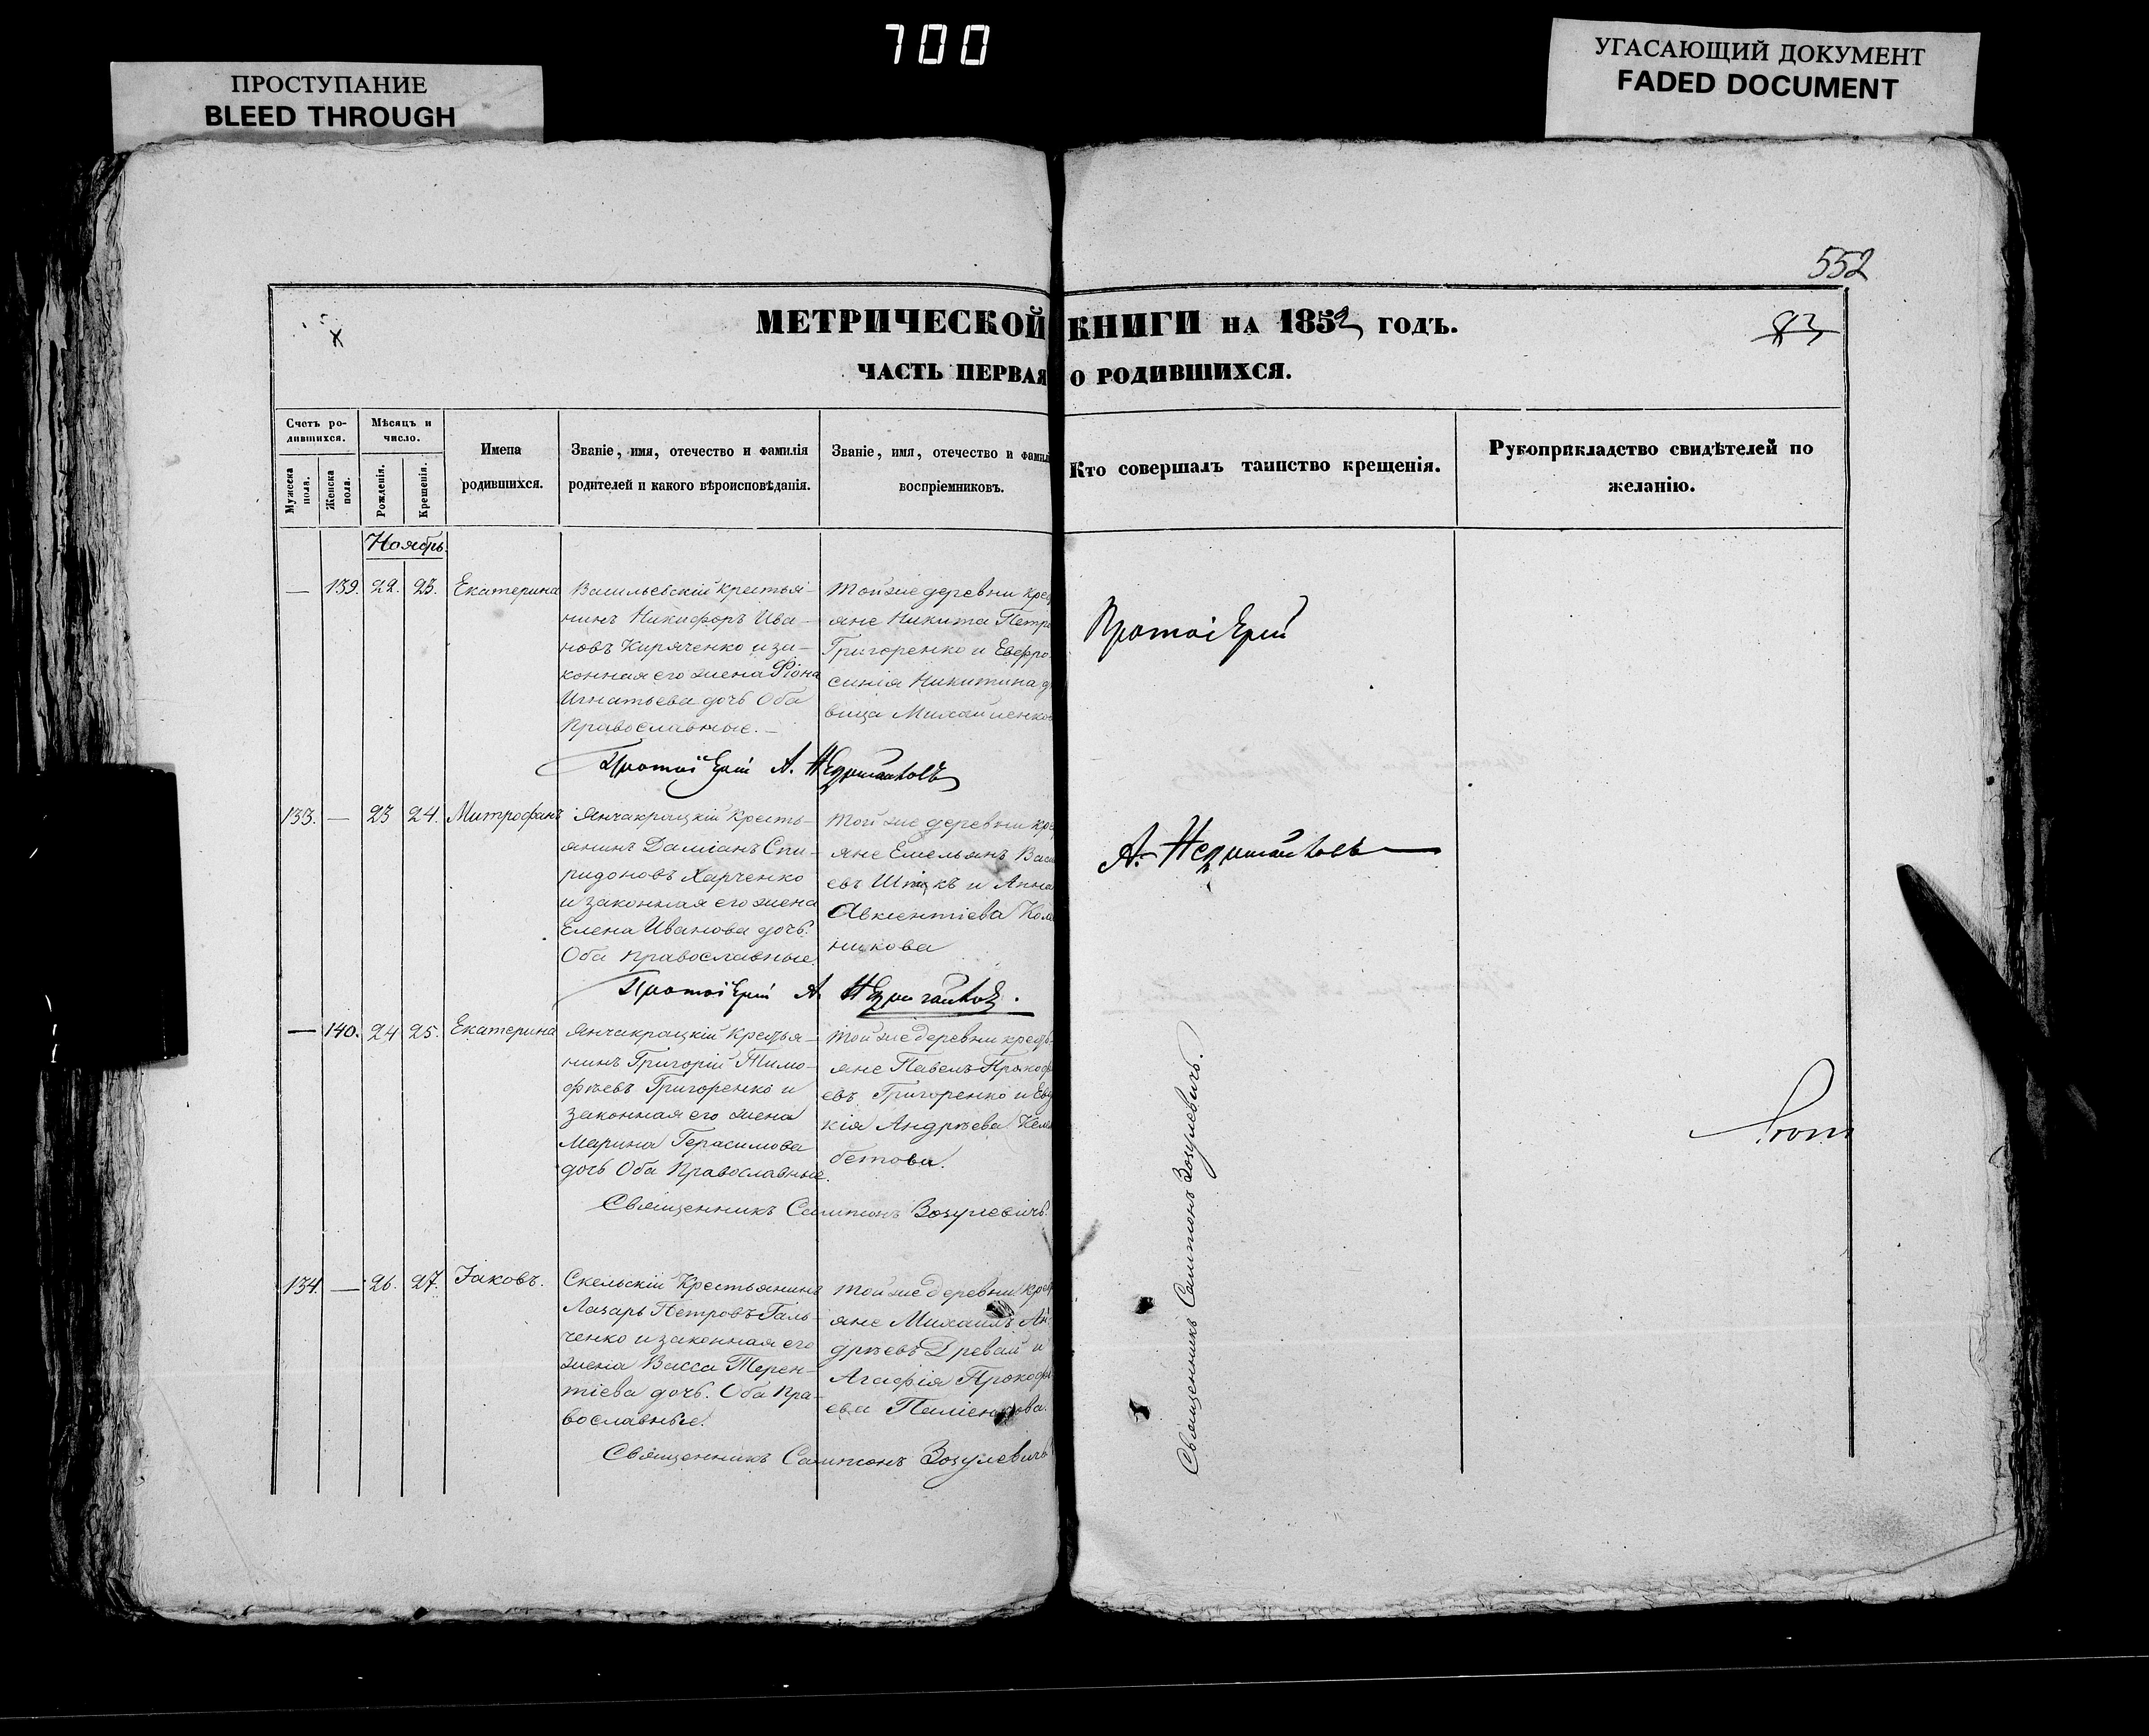 700
ПРОСТУПАНИЕ
BLEED THROUGH
УГАСАЮЩИЙ ДОКУМЕНТ
FADED DOCUMENT
552
МЕТРИЧЕСКОЙ КНИГИ НА 1852 ГОДЪ.
83
ЧАСТЬ ПЕРВАЯ О РОДИВШИХСЯ.
Счетъ ро-
дившихся.
Мужеска пола.
Женска пола.
Мѣсяцъ и
число.
Рожденія.
Крещенія.
Имена
родившихся.
Званіе, имя, отечество и фамилія
родителей и какого вѣроисповѣданія.
Званіе, имя, отечество и фамил
воспріемниковъ.
Кто совершалъ таинство крещенія.
Рукоприкладство свидѣтелей по
желанію.
Ноябрь.
— 139. 22. 23. Екатерина
Васильевскій крестья-
нинъ Никифоръ Ива-
новъ Киряченко и за-
конная его жена Фіона
Игнатьева дочь Оба
Православные.—
Той же деревни крес
яне Никита Петро
Григоренко и Евфро
синія Никитина д
вица Михайленков
Протоіерей
Протоіерей А.
133. — 23 24. Митрофанъ
Янчакрацкій Кресть-
янинъ Даміанъ Спи-
ридоновъ Харченко
и законная его жена
Елена Иванова дочь.
Оба Православные.
Той же деревни кре
яне Емельянъ Васи
евъ и Анна
Авксентіева
никова
А.
Протоіерей А.
— 140. 24 25. Екатерина
Янчакрацкій Крестья-
нинъ Григорій Тимо-
фѣевъ Григоренко и
законная его жена
Марина Герасимова
дочь Оба Православные.
Той же деревни кресть-
яне Павелъ Прокоф
евъ Григоренко и Евд
кія Андрѣева
бетова.
Священникъ Сампсонъ Зозулевичъ.
134. — 26. 27. Іаковъ.
Скельскій Крестьянинъ
Лазарь Петровъ Галь-
ченко и законная его
жена Васса Терен-
тіева дочь. Оба Пра-
вославные.
Той же деревни крест
яне Михаилъ Ан-
дрѣевъ Древаль и
Агафія Прокофь
ева
Священникъ Сампсонъ Зозулевичъ
Священникъ Сампсонъ Зозулевичъ.